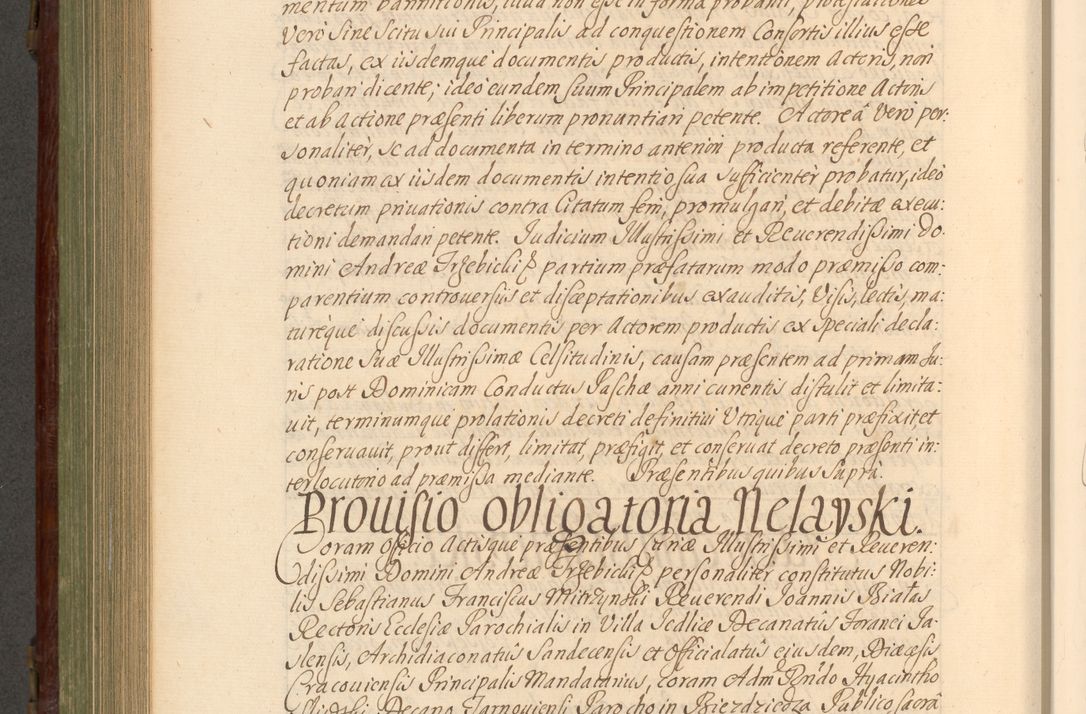 mentum bannitionis, illud non esse in forma probanti, protestationes
vero sine scitu sui Principalis ad conquestionem Consortis illius esse
factas, ex iisdemque documentis productis, intentionem Actoris, non
probari dicente; ideo eundem suum Principalem ab impetitione Actoris
et ab actione præsenti liberum pronuntiari petente. Actore â vero per:
sonalitèr, se ad documenta in termino anteriori producta referente, et
quoniam ex iisdem documentis intentio sua sufficientèr probatur, ideo
decretum privationis contra Citatum ferri, promulgari, et debitæ execu:
tioni demandari petente. Iudicium Illustrissimi et Reverendissimi Do:
mini Andreæ Trzebicki & partium præfatarum modo præmisso com:
parentium controversiis et disceptationibus exauditis, visis, lectis, ma:
turèque discussis documentis per Actorem productis ex speciali decla:
ratione suæ Illustrissimæ Celsitudinis, causam præsentem ad primam Iu:
ris post Dominicam Conductus Paschæ anni currentis distulit et limita:
vit, terminumque prolationis decreti definitivi utrique parti præfixit, et
conservavit, prout differt, limitat, præfigit, et conservat decreto præsenti in:
terlocutorio ad præmissa mediante. Præsentibus quibus suprà.
Provisio obligatoria Nelayski.
Coram officio Actisque præsentibus Curiæ Illustrissimi et Reveren:
dissimi Domini Andreæ Trzebicki & personalitèr constitutus Nobi:
lis Sebastianus Franciscus Mitrzynski Reverendi Joannis Bialas
Rectoris Ecclesiæ Parochialis in Villa Siedlice Decanatûs Foranei Ja:
slensis, Archidiaconatûs Sandecensis et Officialatûs eiusdem, Diæcesis
Cracoviensis Principalis Mandatarius, coram Adm Rndo Hyacintho
Decano Tarnoviensi Parocho in Bierdziedza Publico sacrâ